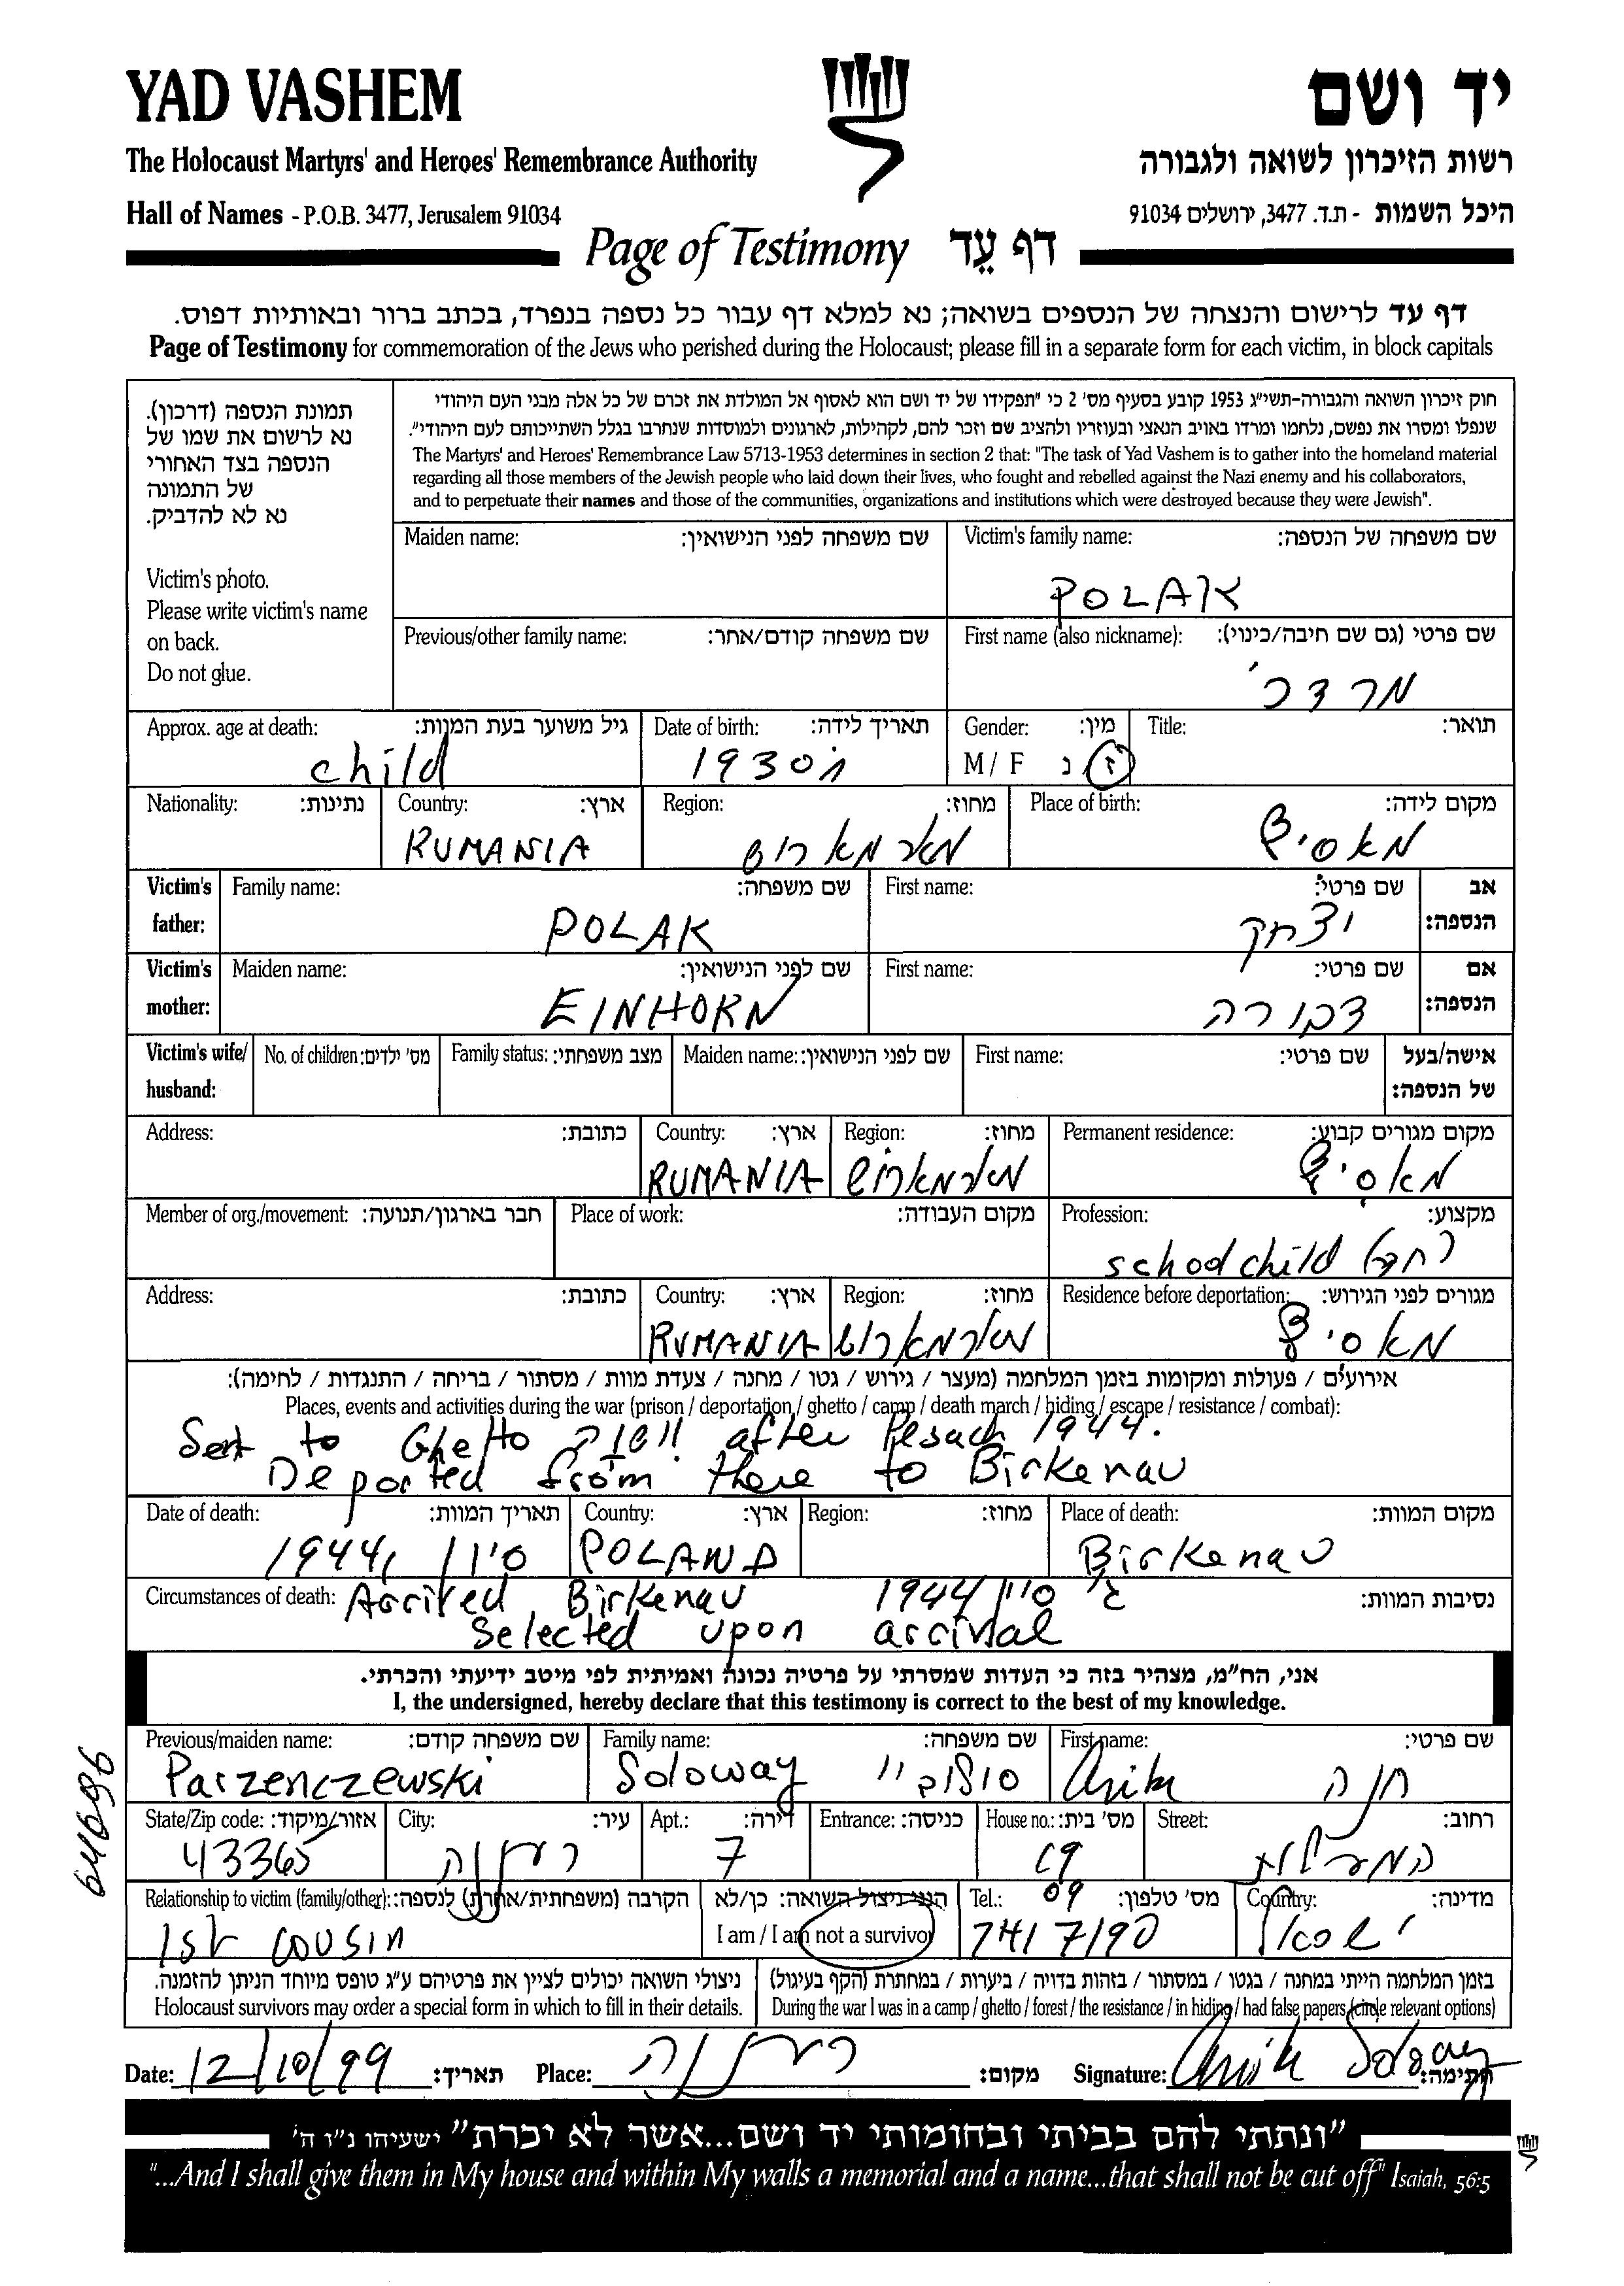 YAD VASHEM
יד ושם
The Holocaust Martyrs' and Heroes' Remembrance Authority
רשות הזיכרון לשואה ולגבורה
Hall of Names - P.O.B. 3477, Jerusalem 91034
היכל השמות - ת.ד. 3477, ירושלים 91034
Page of Testimony דף עֵד
דף עד לרישום והנצחה של הנספים בשואה; נא למלא דף עבור כל נספה בנפרד, בכתב ברור ובאותיות דפוס.
Page of Testimony for commemoration of the Jews who perished during the Holocaust; please fill in a separate form for each victim, in block capitals
תמונת הנספה (דרכון).
נא לרשום את שמו של
הנספה בצד האחורי
של התמונה
נא לא להדביק.
Victim's photo.
Please write victim's name
on back.
Do not glue.
חוק זיכרון השואה והגבורה-תשי"ג 1953 קובע בסעיף מס' 2 כי "תפקידו של יד ושם הוא לאסוף אל המולדת את זכרם של כל אלה מבני העם היהודי
שנפלו ומסרו את נפשם, נלחמו ומרדו באויב הנאצי ובעוזריו ולהציב שם וזכר להם, לקהילות, לארגונים ולמוסדות שנחרבו בגלל השתייכותם לעם היהודי".
The Martyrs' and Heroes' Remembrance Law 5713-1953 determines in section 2 that: "The task of Yad Vashem is to gather into the homeland material
regarding all those members of the Jewish people who laid down their lives, who fought and rebelled against the Nazi enemy and his collaborators,
and to perpetuate their names and those of the communities, organizations and institutions which were destroyed because they were Jewish".
Maiden name: שם משפחה לפני הנישואין:
Victim's family name: שם משפחה של הנספה:
POLAK
Previous/other family name: שם משפחה קודם/אחר:
First name (also nickname): שם פרטי (גם שם חיבה/כינוי):
מרדכי
Approx. age at death: גיל משוער בעת המוות:
child
Date of birth: תאריך לידה:
1930
Gender: מין:
M / F ז נ
Title: תואר:
Nationality: נתינות:
Country: ארץ:
RUMANIA
Region: מחוז:
מארמארוש
Place of birth: מקום לידה:
מאסיף
Victim's father: Family name: שם משפחה:
POLAK
First name: שם פרטי:
יצחק
אב הנספה:
Victim's mother: Maiden name: שם לפני הנישואין:
EINHORN
First name: שם פרטי:
דבורה
אם הנספה:
Victim's wife/ husband: No. of children: מס' ילדים: Family status: מצב משפחתי: Maiden name: שם לפני הנישואין: First name: שם פרטי: אישה/בעל של הנספה:
Address: כתובת:
Country: ארץ:
RUMANIA
Region: מחוז:
מארמארוש
Permanent residence: מקום מגורים קבוע:
מאסיף
Member of org./movement: חבר בארגון/תנועה:
Place of work: מקום העבודה:
Profession: מקצוע:
schoolchild
Address: כתובת:
Country: ארץ:
RUMANIA
Region: מחוז:
מארמארוש
Residence before deportation: מגורים לפני הגירוש:
מאסיף
אירועים / פעולות ומקומות בזמן המלחמה (מעצר / גירוש / גטו / מחנה / צעדת מוות / מסתור / בריחה / התנגדות / לחימה):
Places, events and activities during the war (prison / deportation / ghetto / camp / death march / hiding / escape / resistance / combat):
Sent to Ghetto after Pesach 1944.
Deported from there to Birkenau
Date of death: תאריך המוות:
סיון 1944
Country: ארץ:
POLAND
Region: מחוז:
Place of death: מקום המוות:
Birkenau
Circumstances of death: נסיבות המוות:
Arrived Birkenau ג' סיון 1944
Selected upon arrival
אני, הח"מ, מצהיר בזה כי העדות שמסרתי על פרטיה נכונה ואמיתית לפי מיטב ידיעתי והכרתי.
I, the undersigned, hereby declare that this testimony is correct to the best of my knowledge.
Previous/maiden name: שם משפחה קודם:
Parzenczewski
Family name: שם משפחה:
Soloway סולוביי
First name: שם פרטי:
Anita חנה
State/Zip code: אזור/מיקוד:
43365
City: עיר:
רעננה
Apt.: דירה:
7
Entrance: כניסה:
House no.: מס' בית:
Street: רחוב:
Relationship to victim (family/other): הקרבה (משפחתית/אחרת) לנספה:
1st COUSIN
הנני ניצול השואה: כן/לא
I am / I am not a survivor
Tel.: מס' טלפון:
09
7417190
Country: מדינה:
ישראל
ניצולי השואה יכולים לציין את פרטיהם ע"ג טופס מיוחד הניתן להזמנה.
Holocaust survivors may order a special form in which to fill in their details.
בזמן המלחמה הייתי במחנה / בגטו / במסתור / בזהות בדויה / ביערות / במחתרת (הקף בעיגול)
During the war I was in a camp / ghetto / forest / the resistance / in hiding / had false papers (circle relevant options)
Date: 12/10/99 תאריך: Place: רעננה מקום: Signature: Anita Soloway חתימה:
646696
"ונתתי להם בביתי ובחומותי יד ושם...אשר לא יכרת" ישעיהו נ"ו ה'
"...And I shall give them in My house and within My walls a memorial and a name...that shall not be cut off" Isaiah, 56:5